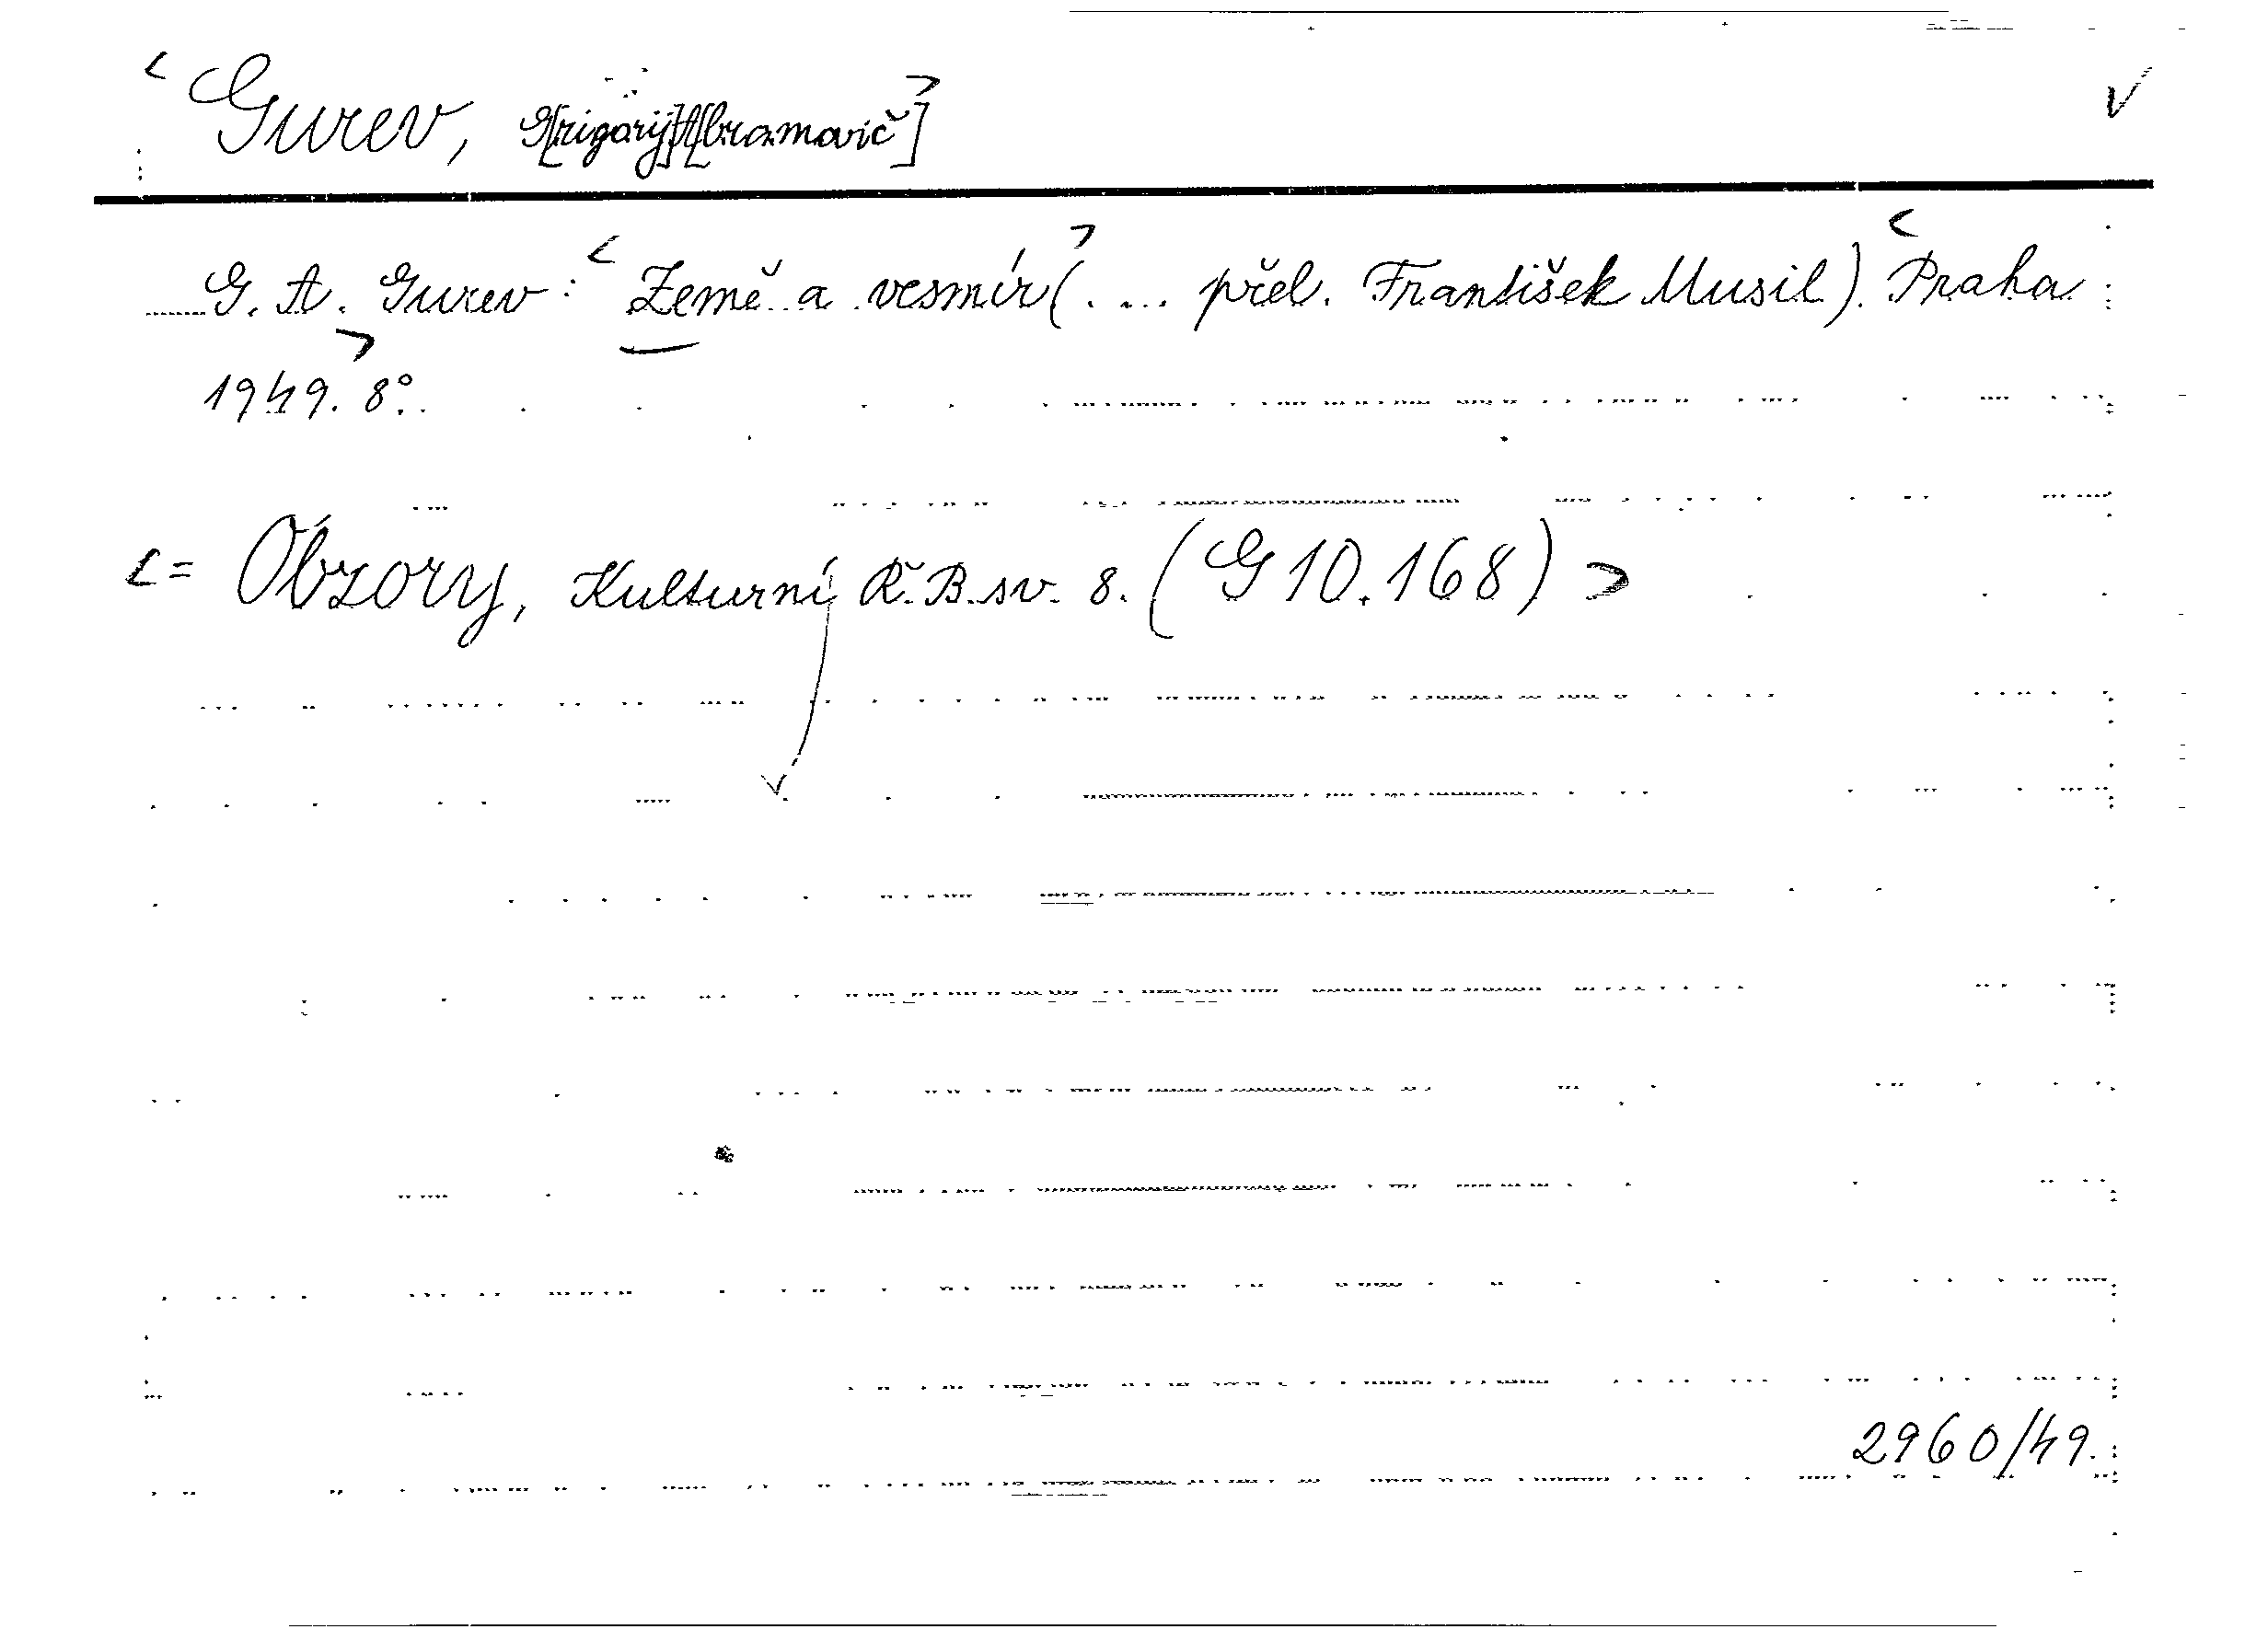 < Gurev, G[rigorij] A[bramovič] > √
G. A. Gurev: < Země a vesmír > (. ... přel. František Musil). < Praha
1949. > 8°.
< = Obzory, Kulturní Ř. B. sv. 8. (G 10.168) >
2960/49.